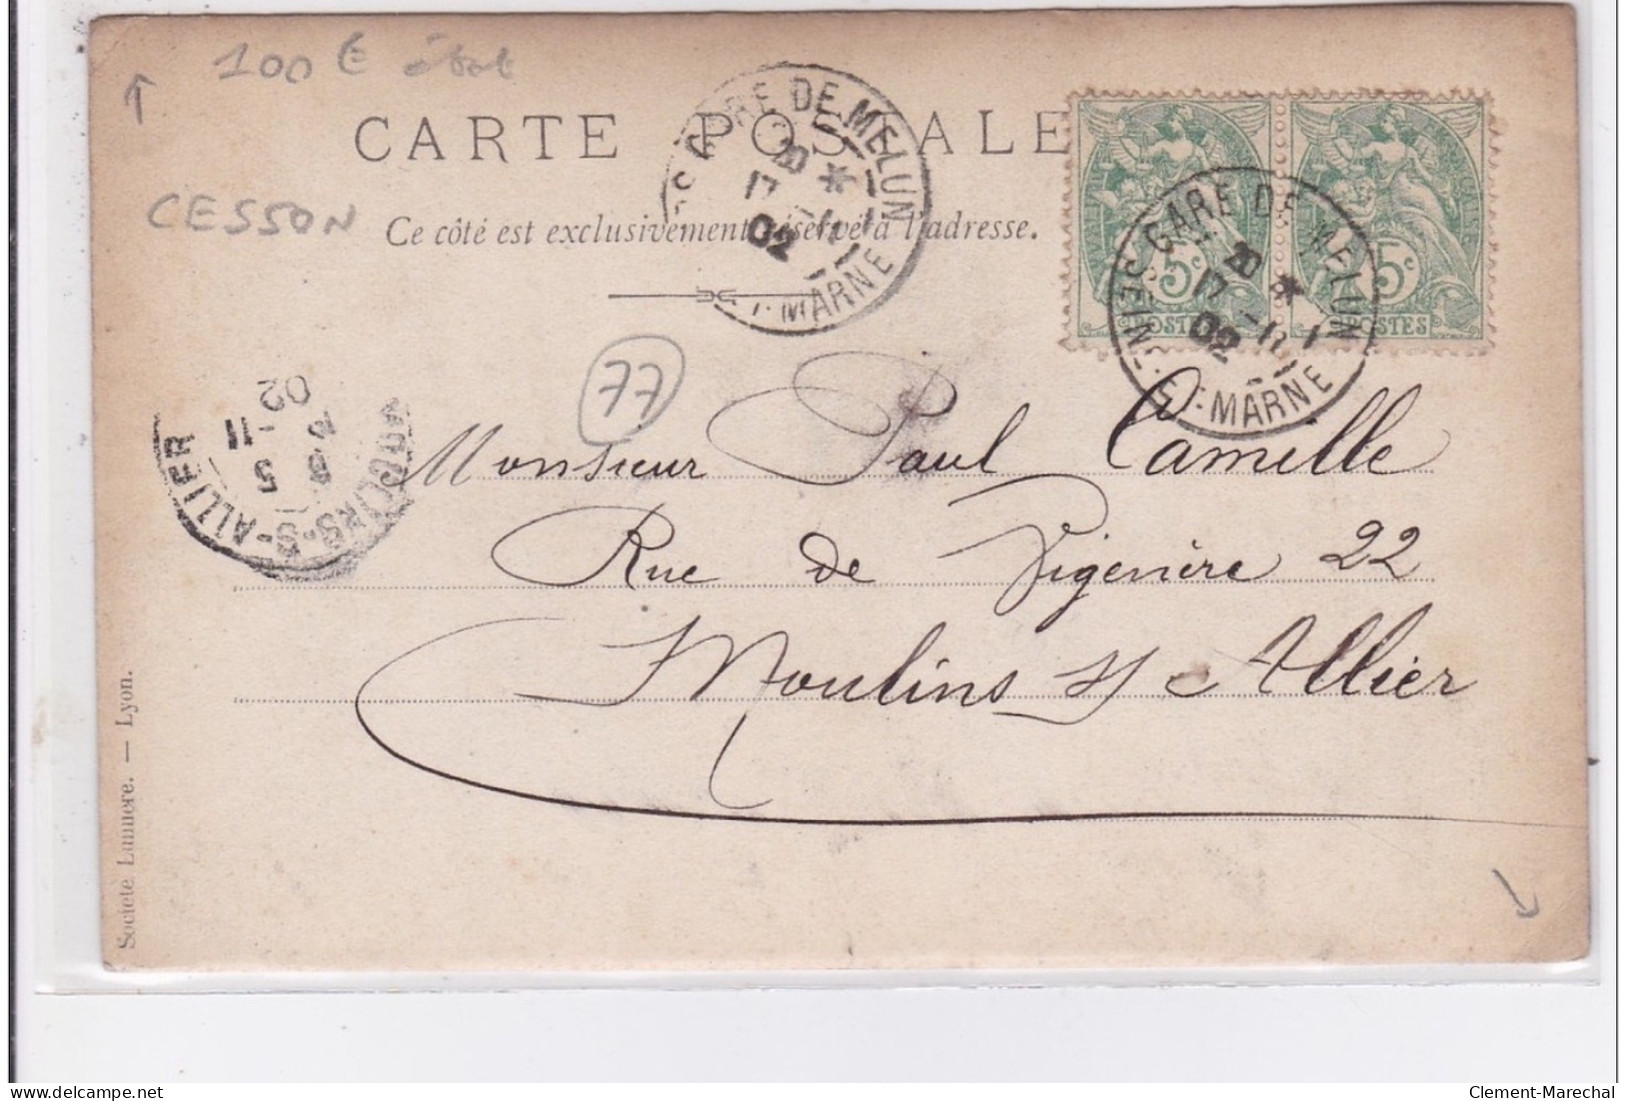 100 € état
CARTE POSTALE
CESSON
Ce côté est exclusivement réservé à l'adresse.
GARE DE MELUN
20
17 -11
02
S.-MARNE
5c 5c
POSTES POSTES
GARE DE MELUN
20
17 -11
02
SEINE-&-MARNE
77
MOULINS-S-ALLIER
5
-11
02
Monsieur Paul Camille
Rue de Vigenère 22
Moulins s/ Allier
Société Lumière. — Lyon.
delcampe.net
Clement-Marechal